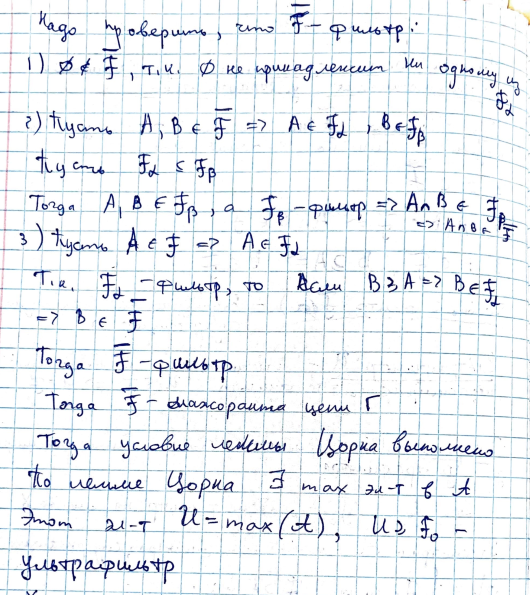 Надо проверить, что F̅ - фильтр:
1) ∅ ∉ F̅, т.к. ∅ не принадлежит ни одному из F_α
2) Пусть A, B ∈ F̅ => A ∈ F_α, B ∈ F_β
Пусть F_α ≤ F_β
Тогда A, B ∈ F_β, а F_β - фильтр => A∩B ∈ F_β
=> A∩B ∈ F̅
3) Пусть A ∈ F => A ∈ F_α
Т.к. F_α - фильтр, то если B ⊇ A => B ∈ F_α
=> B ∈ F̅
Тогда F̅ - фильтр
Тогда F̅ - мажоранта цепи Γ
Тогда условие леммы Цорна выполнено
По лемме Цорна ∃ max эл-т в A
Этот эл-т U = max(A), U ⊇ F₀ -
ультрафильтр